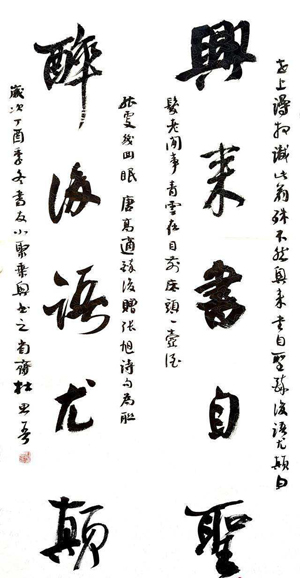 世上謾相識此翁殊不然興來書自聖醉後語尤顛白
興來書自聖
髮老閒事青雲在目前床頭一壺酒
能更幾回眠唐高適醉後贈張旭詩句為聯
醉後語尤顛
歲次丁酉季冬書友小聚乘興書之南齋杜